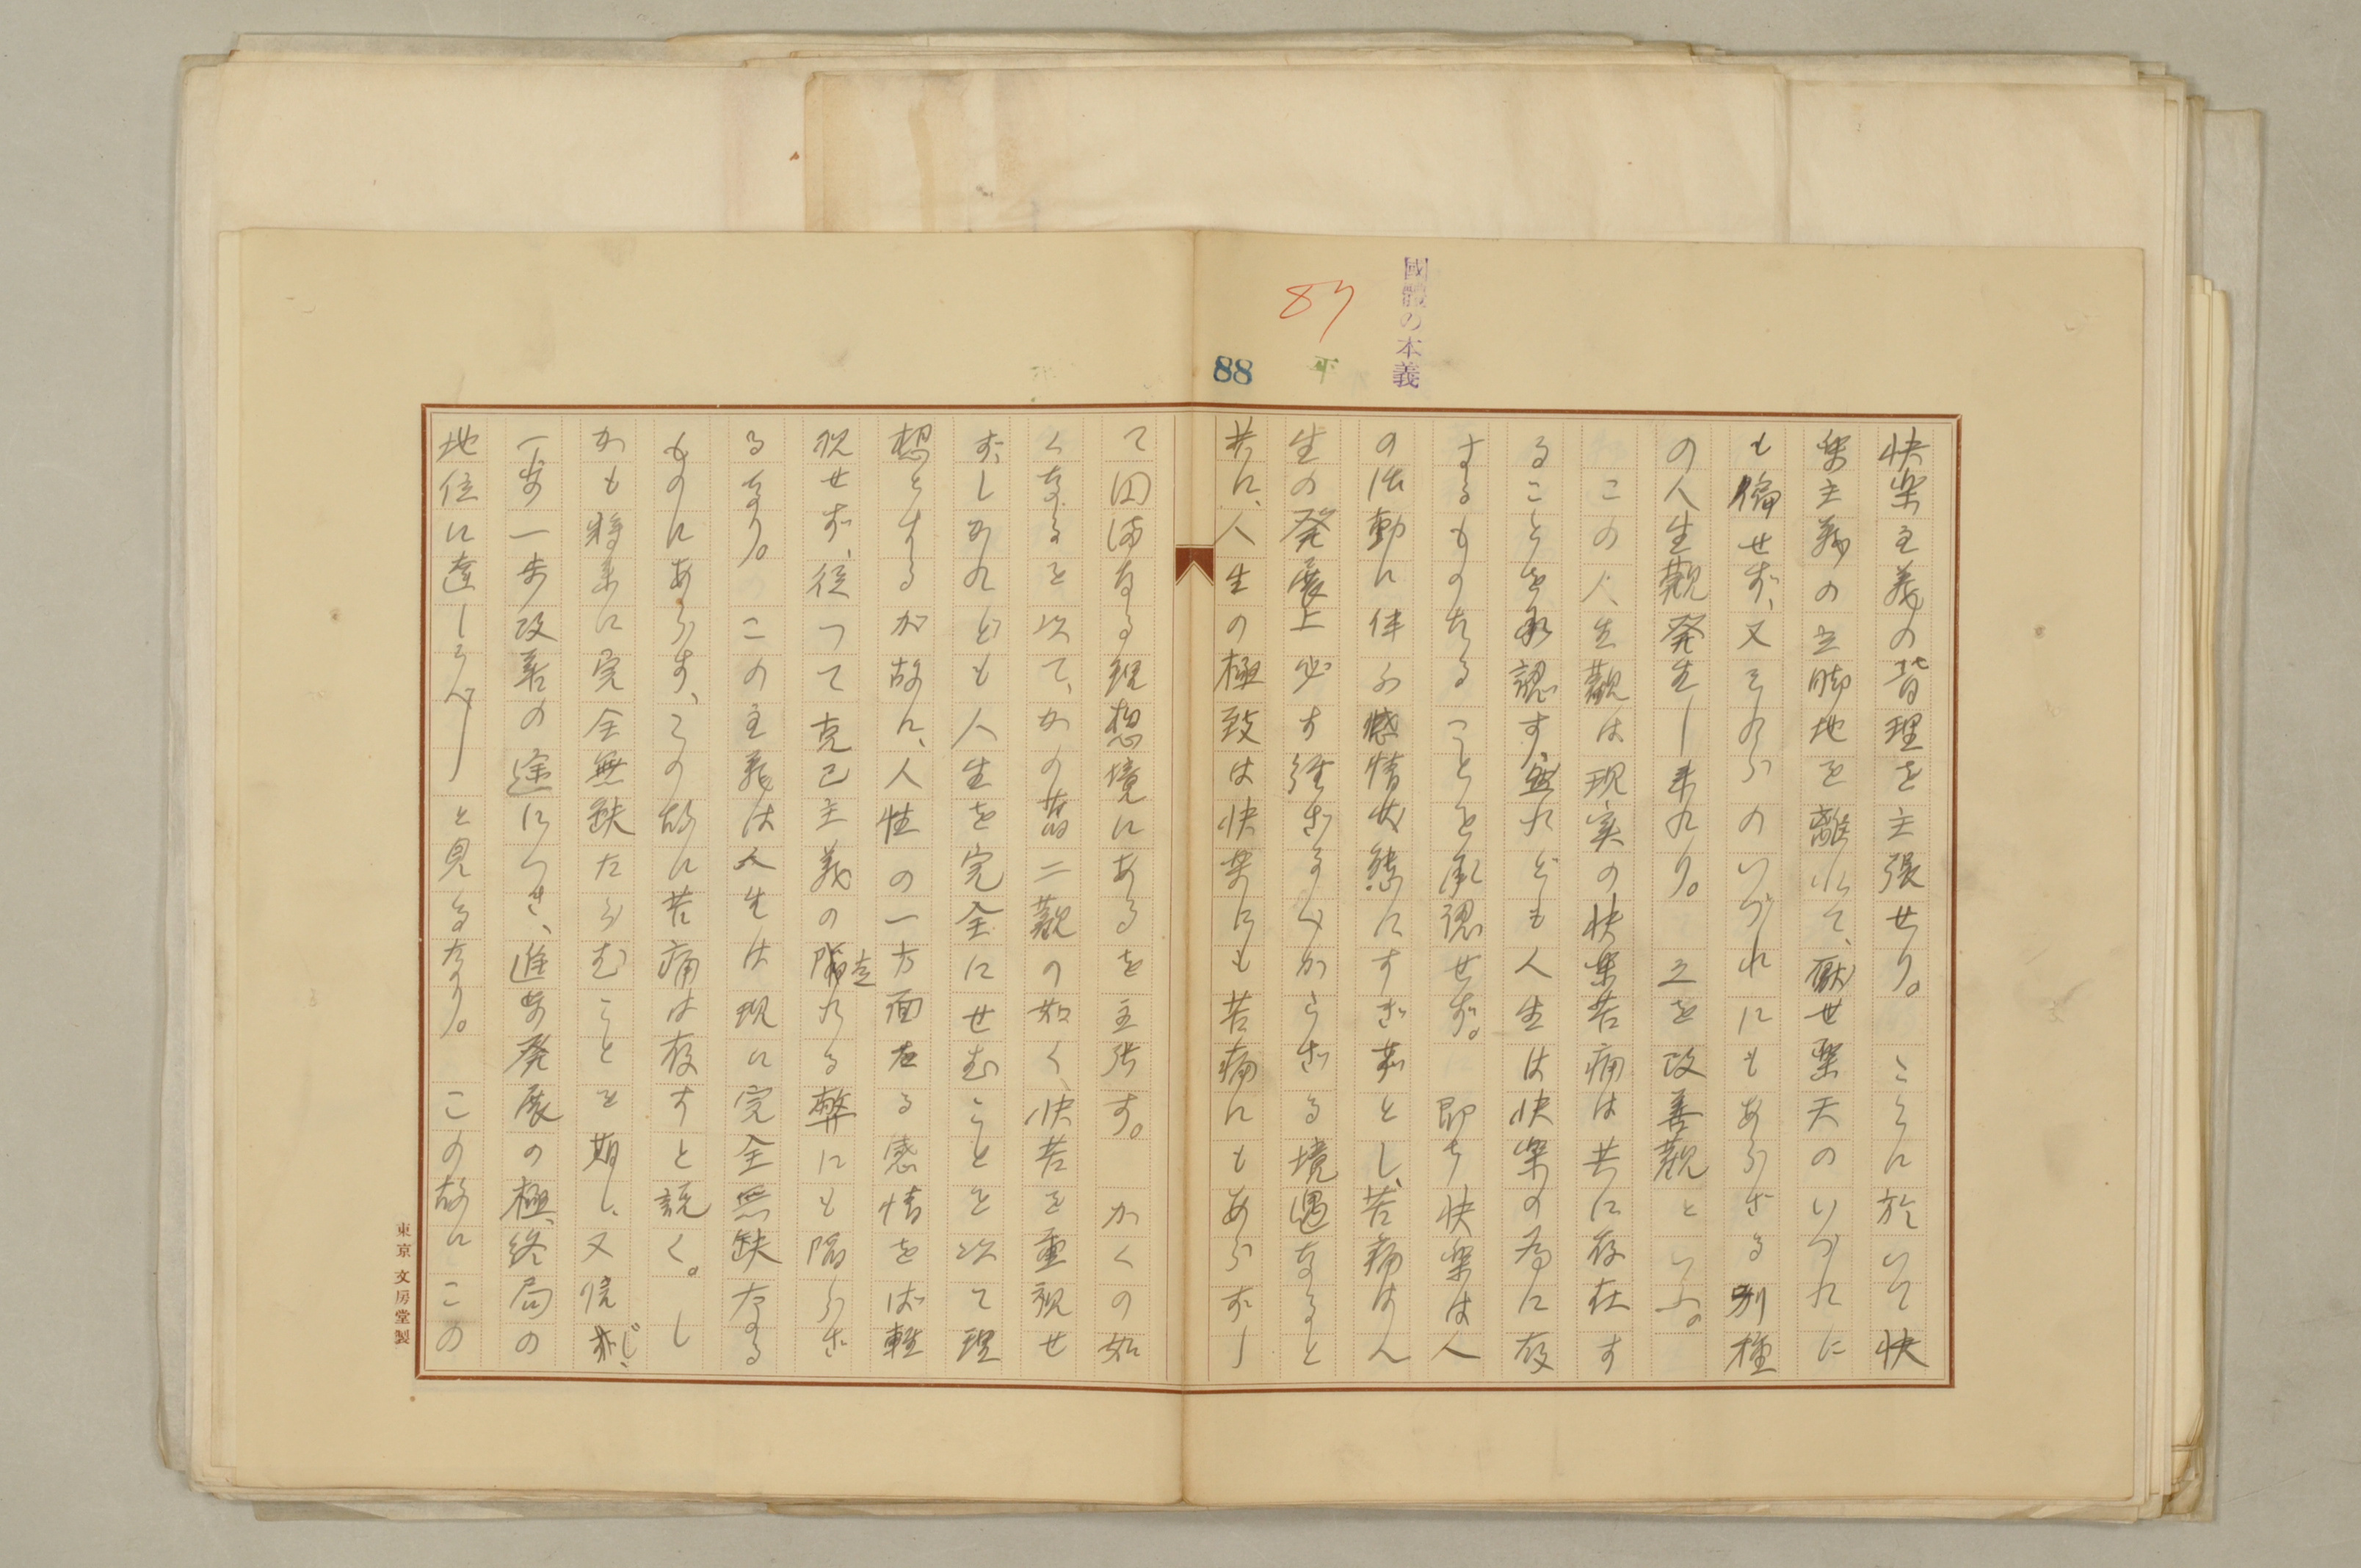 國體の本義
87
平
88
快楽主義の背理を主張せり。こゝに於いて快
楽主義の立脚地を離れて、厭世楽天のいづれに
も偏せず、又それらのいづれにもあらざる別種
の人生観発生し来れり。之を改善観といふ。
この人生観は現実の快楽苦痛は共に存在す
ることを承認す、然れども人生は快楽の為に存
するものたることを承認せず。即ち快楽は人
の活動に伴ふ感情状態にすぎずとし、苦痛はん
生の発展上必す経ざるべからざる境遇なると
共に、人生の極致は快楽にも苦痛にもあらずし
て円満なる理想境にあるを主張す。かくの如
くなるを以て、かの旧二観の如く、快苦を重視せ
ず、しかれども人生を完全にせむことを以て理
想とするが故に、人性の一方面たる感情をば軽
視せず、従つて克己主義の陥れる弊にも陥らざ
るなり。この主義は人生は現に完全無缺なる
ものにあらず、この故に苦痛は存すと説く。し
かも将来に完全無缺たらむことを期し、又信じ、
一歩一歩改善の途につき、進歩発展の極、終局の
地位に達しうべしと見るなり。この故にこの
東京 文房堂製